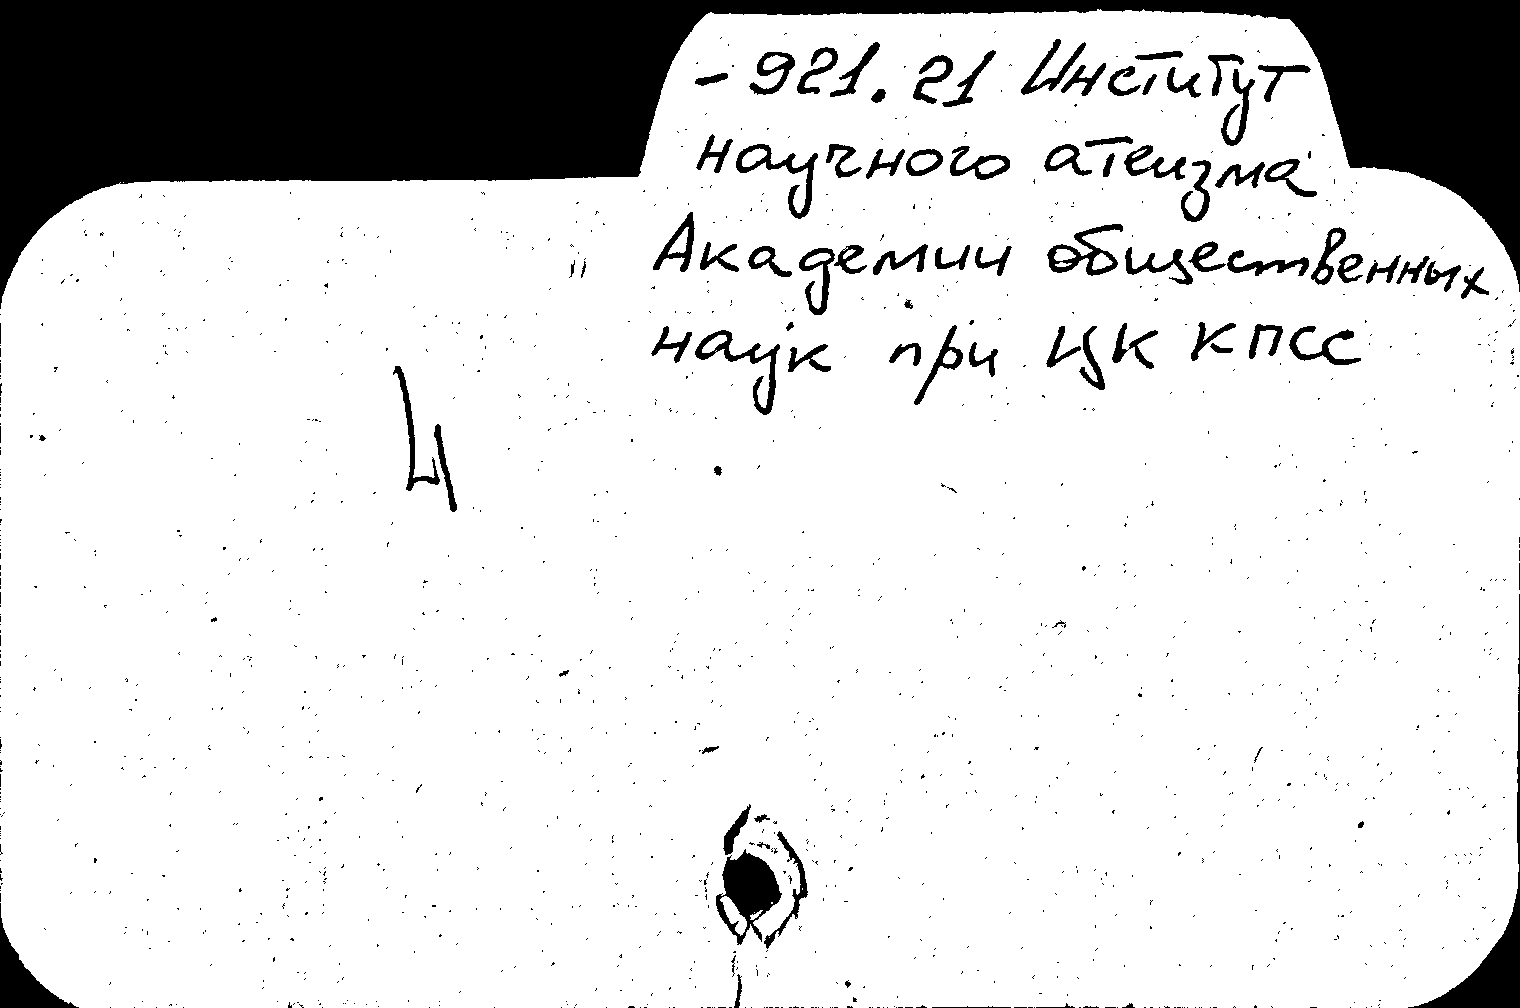 - 921.21 Институт
научного атеизма
Академии общественных
наук при ЦК КПСС